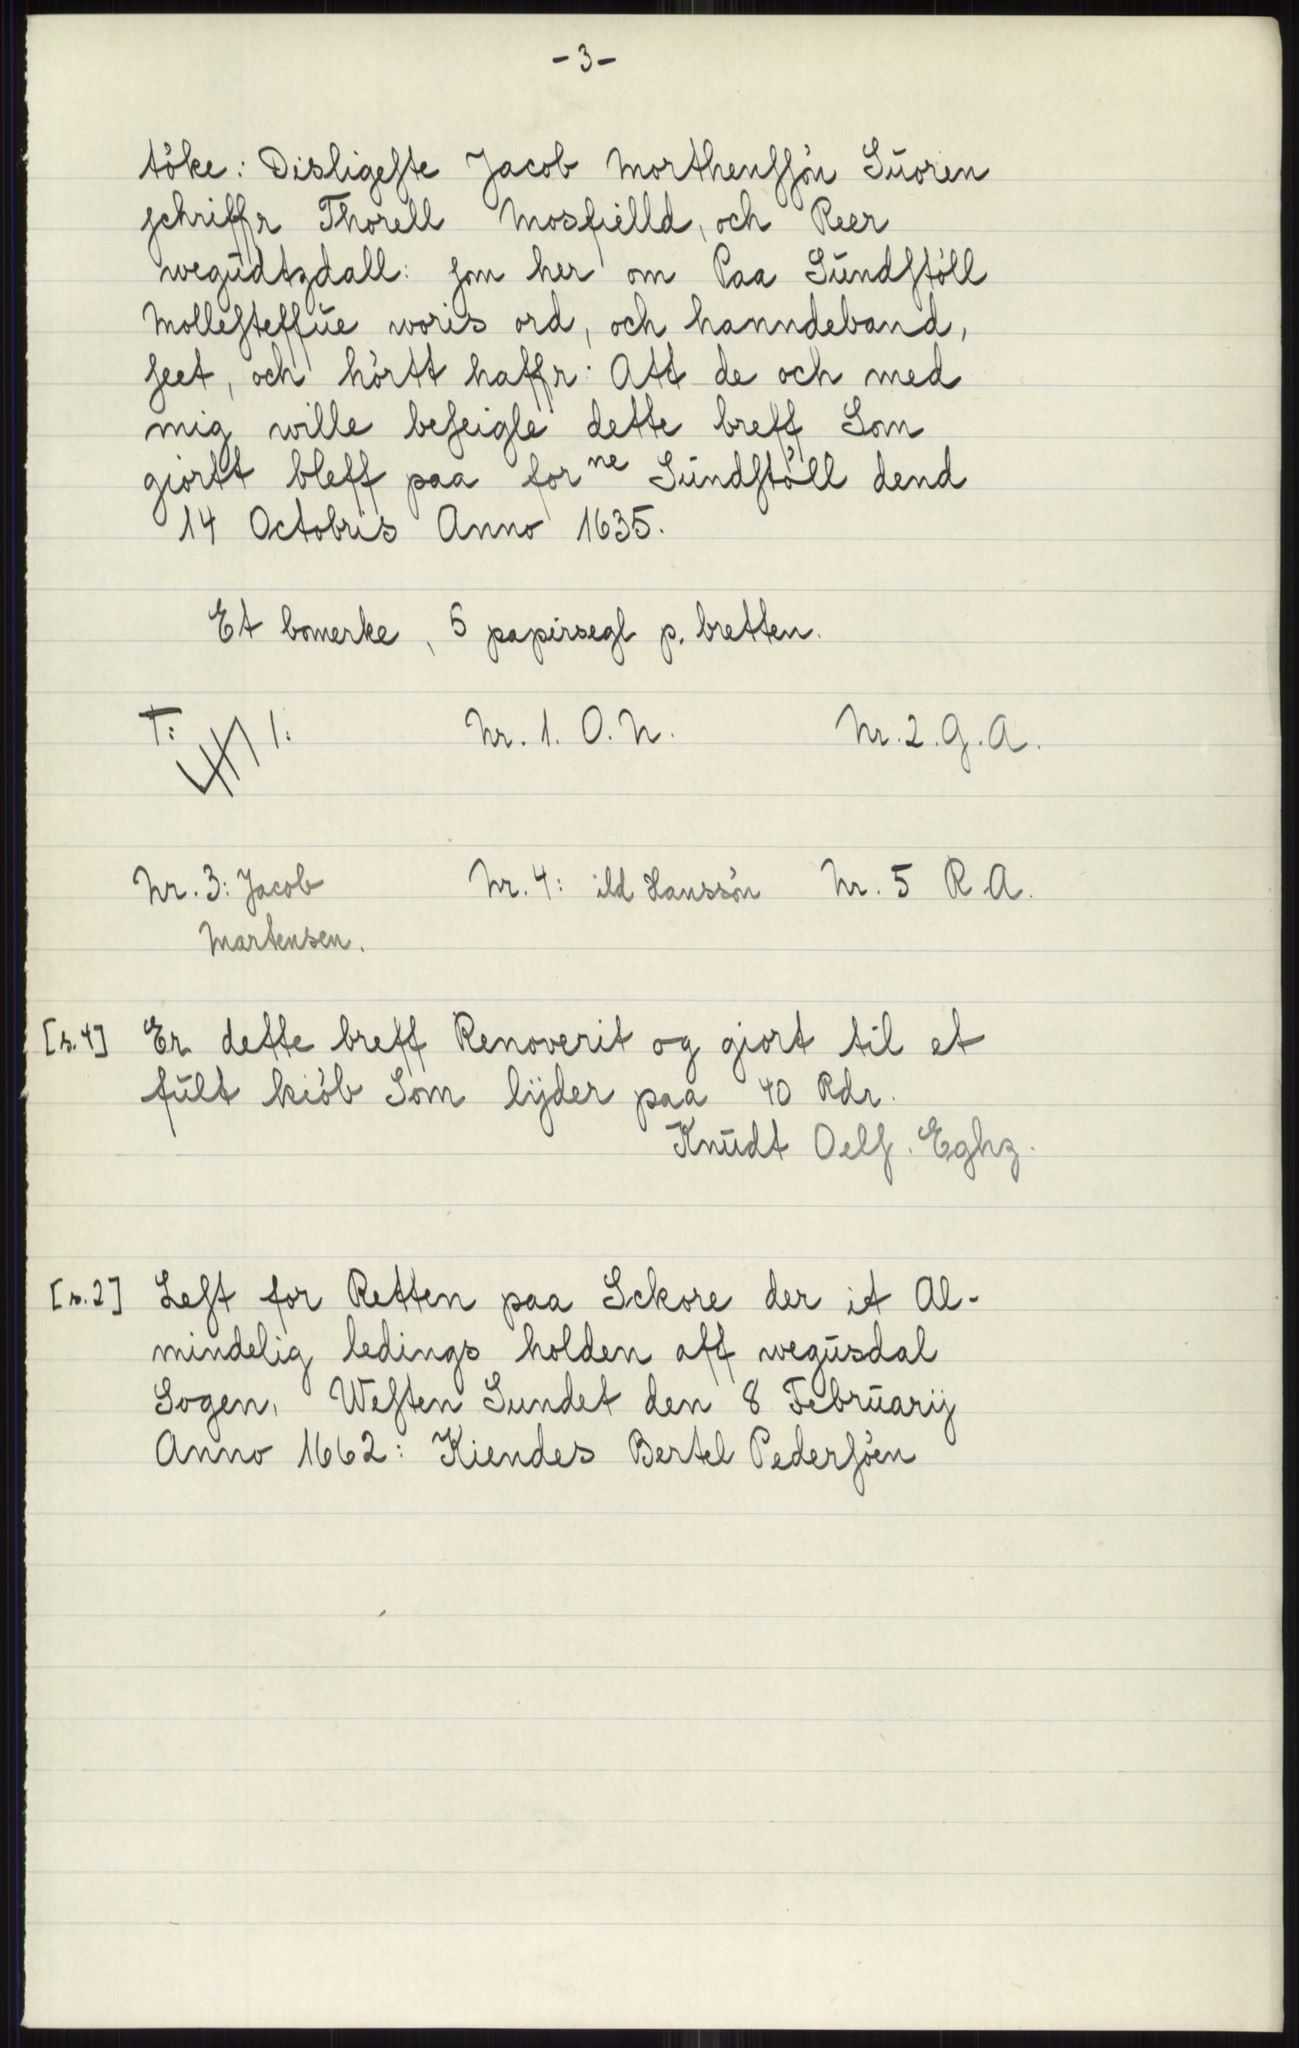 -3-
töke: Disligeste Jacob Morthenssön Suoren
schriffr Thorell Mosfielld, och Reer
wegudtzdall: som her om Paa Sundstöll
Mollesteffue woris ord, och hanndeband,
seet, och hörtt haffr: Att de och med
mig wille beseigle dette breff Som
giortt bleff paa forne Sundstöll dend
14 Octobris Anno 1635.
Et bomerke, 5 papirsegl p. bretten.
T: 1: Nr. 1. O. N. Nr. 2. G. A.
Nr. 3: Jacob Nr. 4: ild Hanssön Nr. 5 R. A.
Martensen.
[s. 4] Er dette breff Renoverit og giort til et
fult kiöb Som lyder paa 40 Rdr.
Knudt Oelf. Eghz.
[s. 2] Lest for Retten paa Sckore der it Al-
mindelig ledings holden aff wegusdal
Sogen, Westen Sundet den 8 Februarij
Anno 1662: Kiendes Bertel Pedersöen